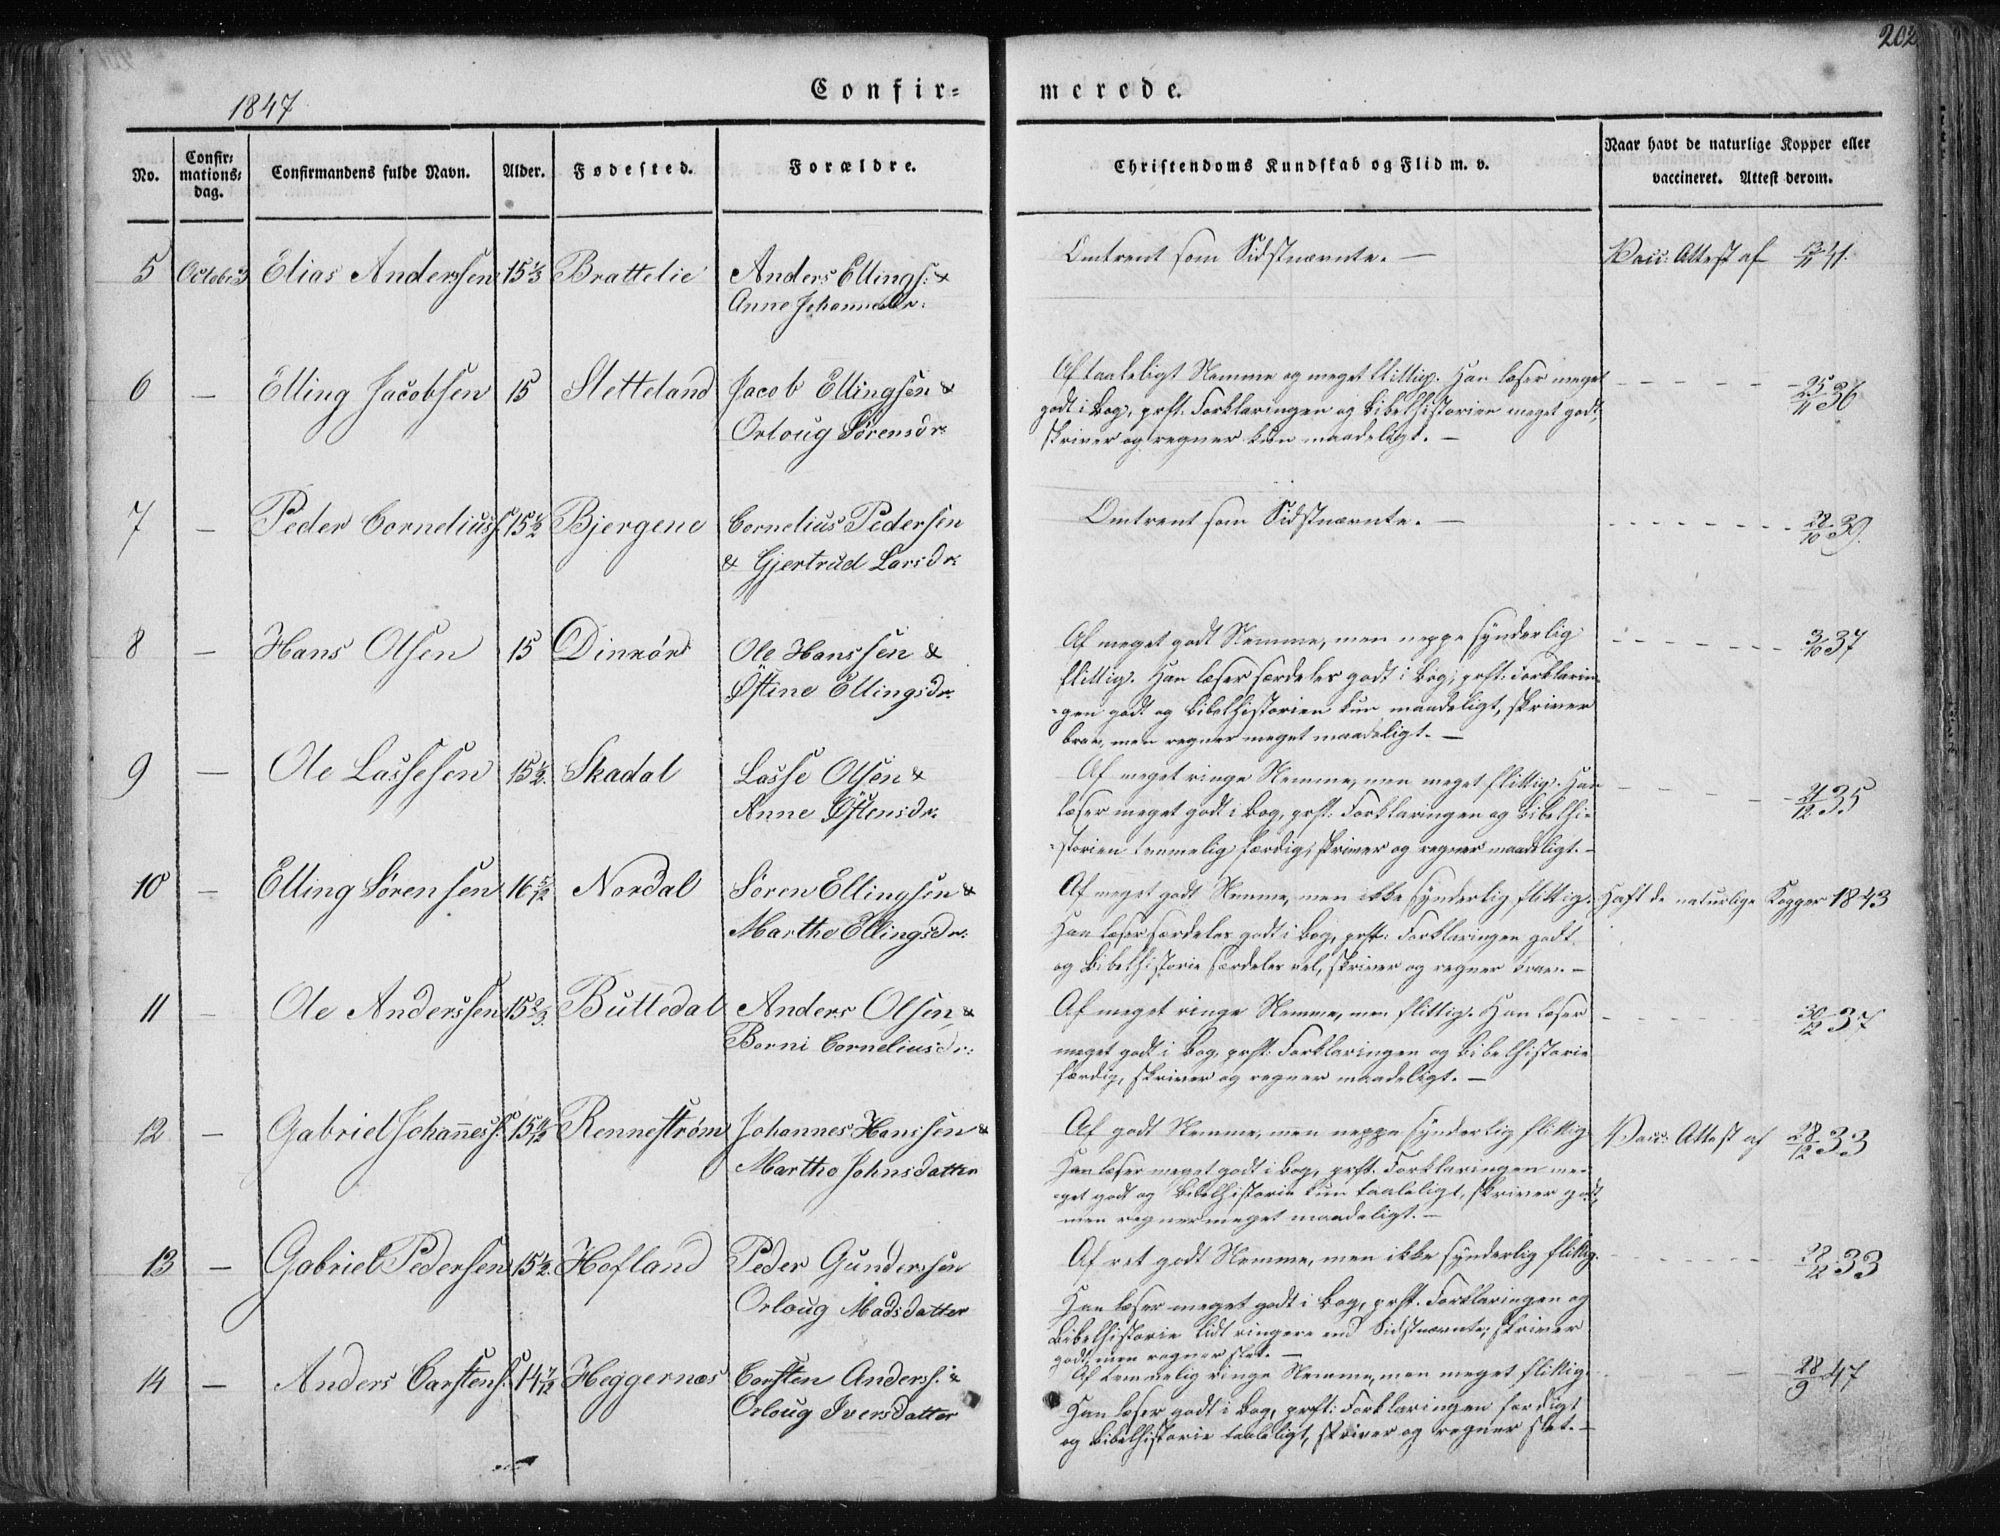 202
1847
Confir=
merede.
No.
Confir=
mations=
dag.
Confirmandens fulde Navn.
Alder.
Fødested.
Forældre.
Christendoms Kundskab og Flid m. v.
Naar havt de naturlige Kopper eller
vaccineret. Attest derom.
5 October 3 Elias Anderssen 15 1/3 Brattelie Anders Ellings: &
Anne Johannesdr:
Omtrent som Sidstnævnte. —
Vacc: Attest af 41.
6 — Elling Jacobsen 15 Sletteland Jacob Ellingsen &
Orloug Sørensdr:
Af taaleligt Nemme og meget flittig. Han læser meget
godt i Bog, prst: Forklaringen og Bibelhistorien meget godt,
skriver og regner kun maadeligt. —
25/11 36
7 — Peder Corneliuss. 15 1/2 Bjergene Cornelius Pedersen
& Gjertrud Larsdr:
Omtrent som Sidstnævnte. —
28/10 39.
8 — Hans Olsen 15 Dinnør Ole Hanssen &
Østine Ellingsdr.
Af meget godt Nemme, men neppe synderlig
flittig. Han læser særdeles godt i Bog; prst: Forklarin-
-gen godt og Bibelhistorien kun maadeligt, skriver
brav, men regner meget maadeligt. —
3/10 37
9 — Ole Lassesen 15 1/2. Skadal Lasse Olsen &
Anne Østensdr.
Af meget ringe Nemme, men meget flittig. Han
læser meget godt i Bog, prst: Forklaringen og Bibelhi-
-storien temmelig færdig; skriver og regner maadeligt. —
21/12 35
10 — Elling Sørensen 16 5/12 Nordal Søren Ellingsen &
Marthe Ellingsdr:
Af meget godt Nemme, men ikke synderlig flittig.
Han læser særdeles godt i Bog, prst: Forklaringen godt
og Bibelhistorie særdeles vel, skriver og regner brav. —
Haft de naturlige Kopper 1843
11 — Ole Anderssen 15 2/3. Buttedal Anders Olsen &
Borni Corneliusdr:
Af meget ringe Nemme, men flittig. Han læser
meget godt i Bog, prst: Forklaringen og Bibelhistorie
færdig, skriver og regner maadeligt. —
30/12 37
12 — Gabriel Johanness. 15 Rennestrøm Johannes Hanssen &
Marthe Johnsdatter
Af godt Nemme, men neppe synderlig flittig
Han læser meget godt i Bog, prst: Forklaringen me-
-get godt og Bibelhistorie kun taaleligt, skriver godt,
men regner meget maadeligt. —
Vacc: Attest af 28/12 33
13 — Gabriel Pedersen 15 1/2. Hofland Peder Gunderssen
Orloug Madsdatter
Af ret godt Nemme, men ikke synderlig flittig.
Han læser meget godt i Bog, prst. Forklaringen og
Bibelhistorie lidt ringere end Sidstnævnte; skriver
godt, men regner slet. —
28/12 33
14 — Anders Carstens. 14 7/12 Heggernæs Carsten Anders. &
Orloug Iversdatter
Af temmelig ringe Nemme, men meget flittig.
Han læser godt i Bog, prst: Forklaringen færdigt
og Bibelhistorie taaleligt, skriver og regner slet. —
28/9 47